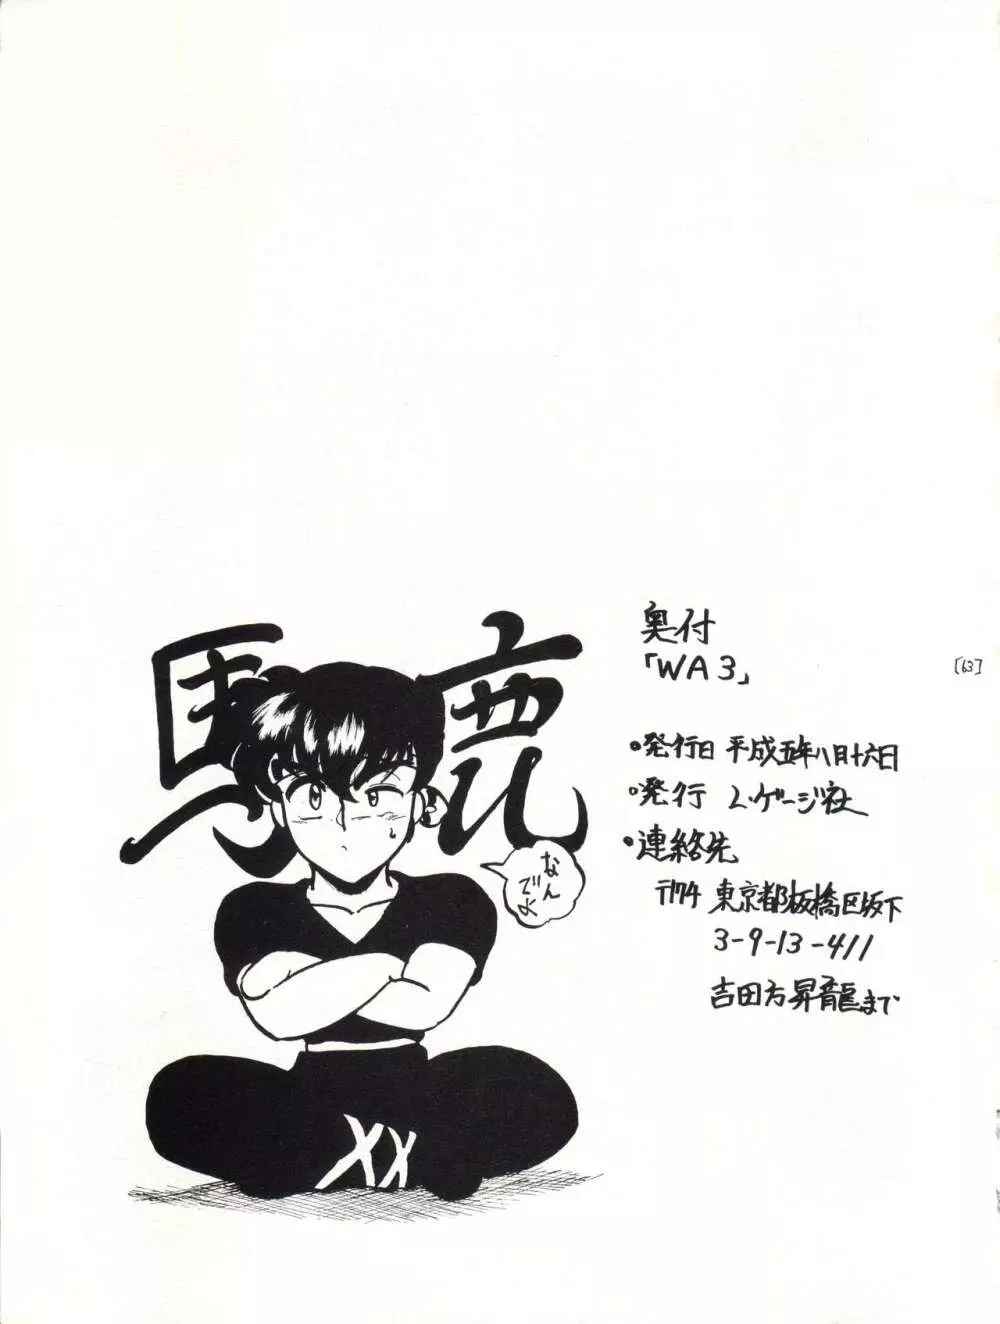 奥付
「WA3」
[63]
•発行日 平成五年八月十六日
•発行 L・ゲージ社
•連絡先
〒174 東京都板橋区坂下
3-9-13-411
吉田方昇龍まで
馬鹿
なん
でよ